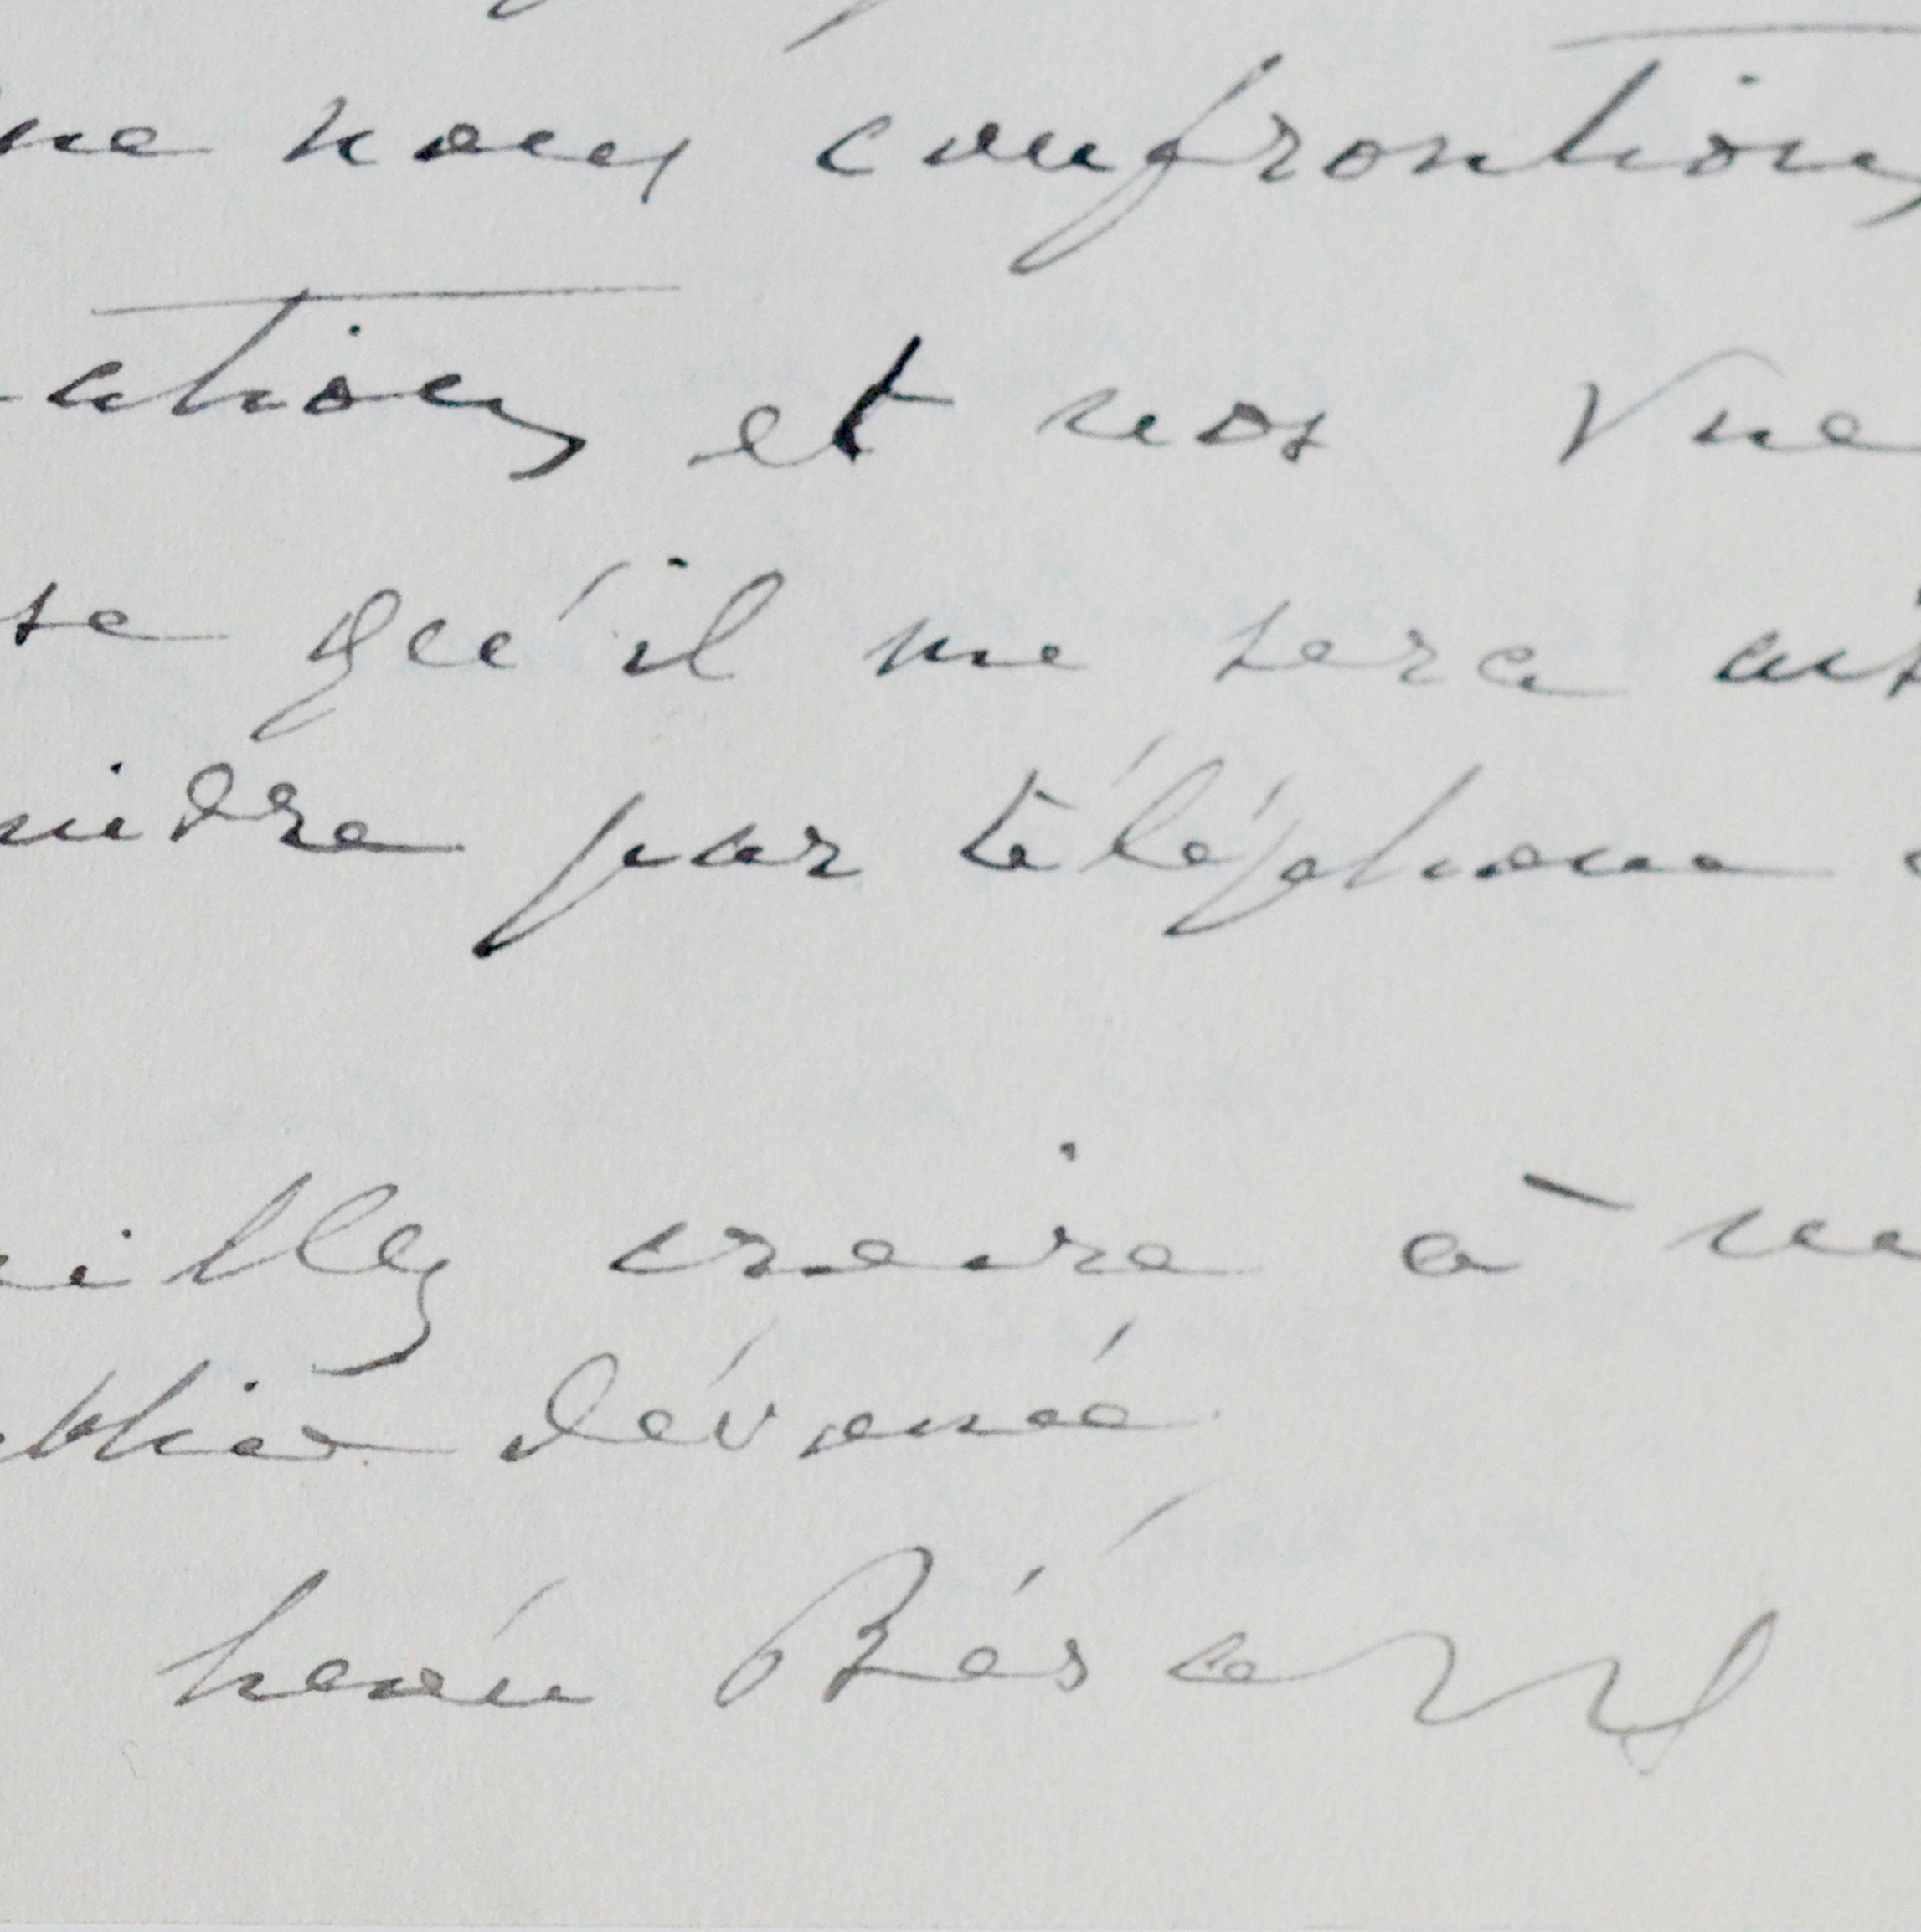 que nous confrontions
ations et nos vue
se qu'il me sera ais
indre par téléphone
euillez croire à
dévoué
Bésard